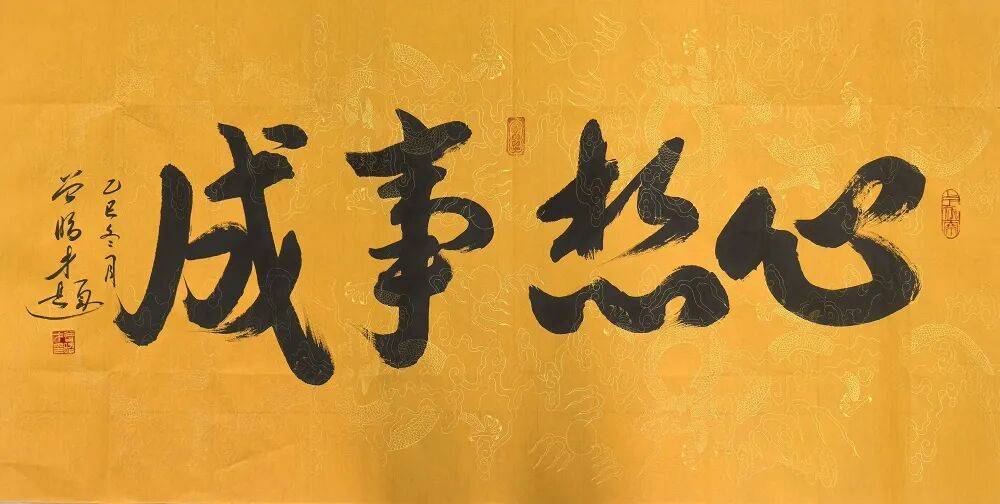 心想事成
乙巳冬月
才題